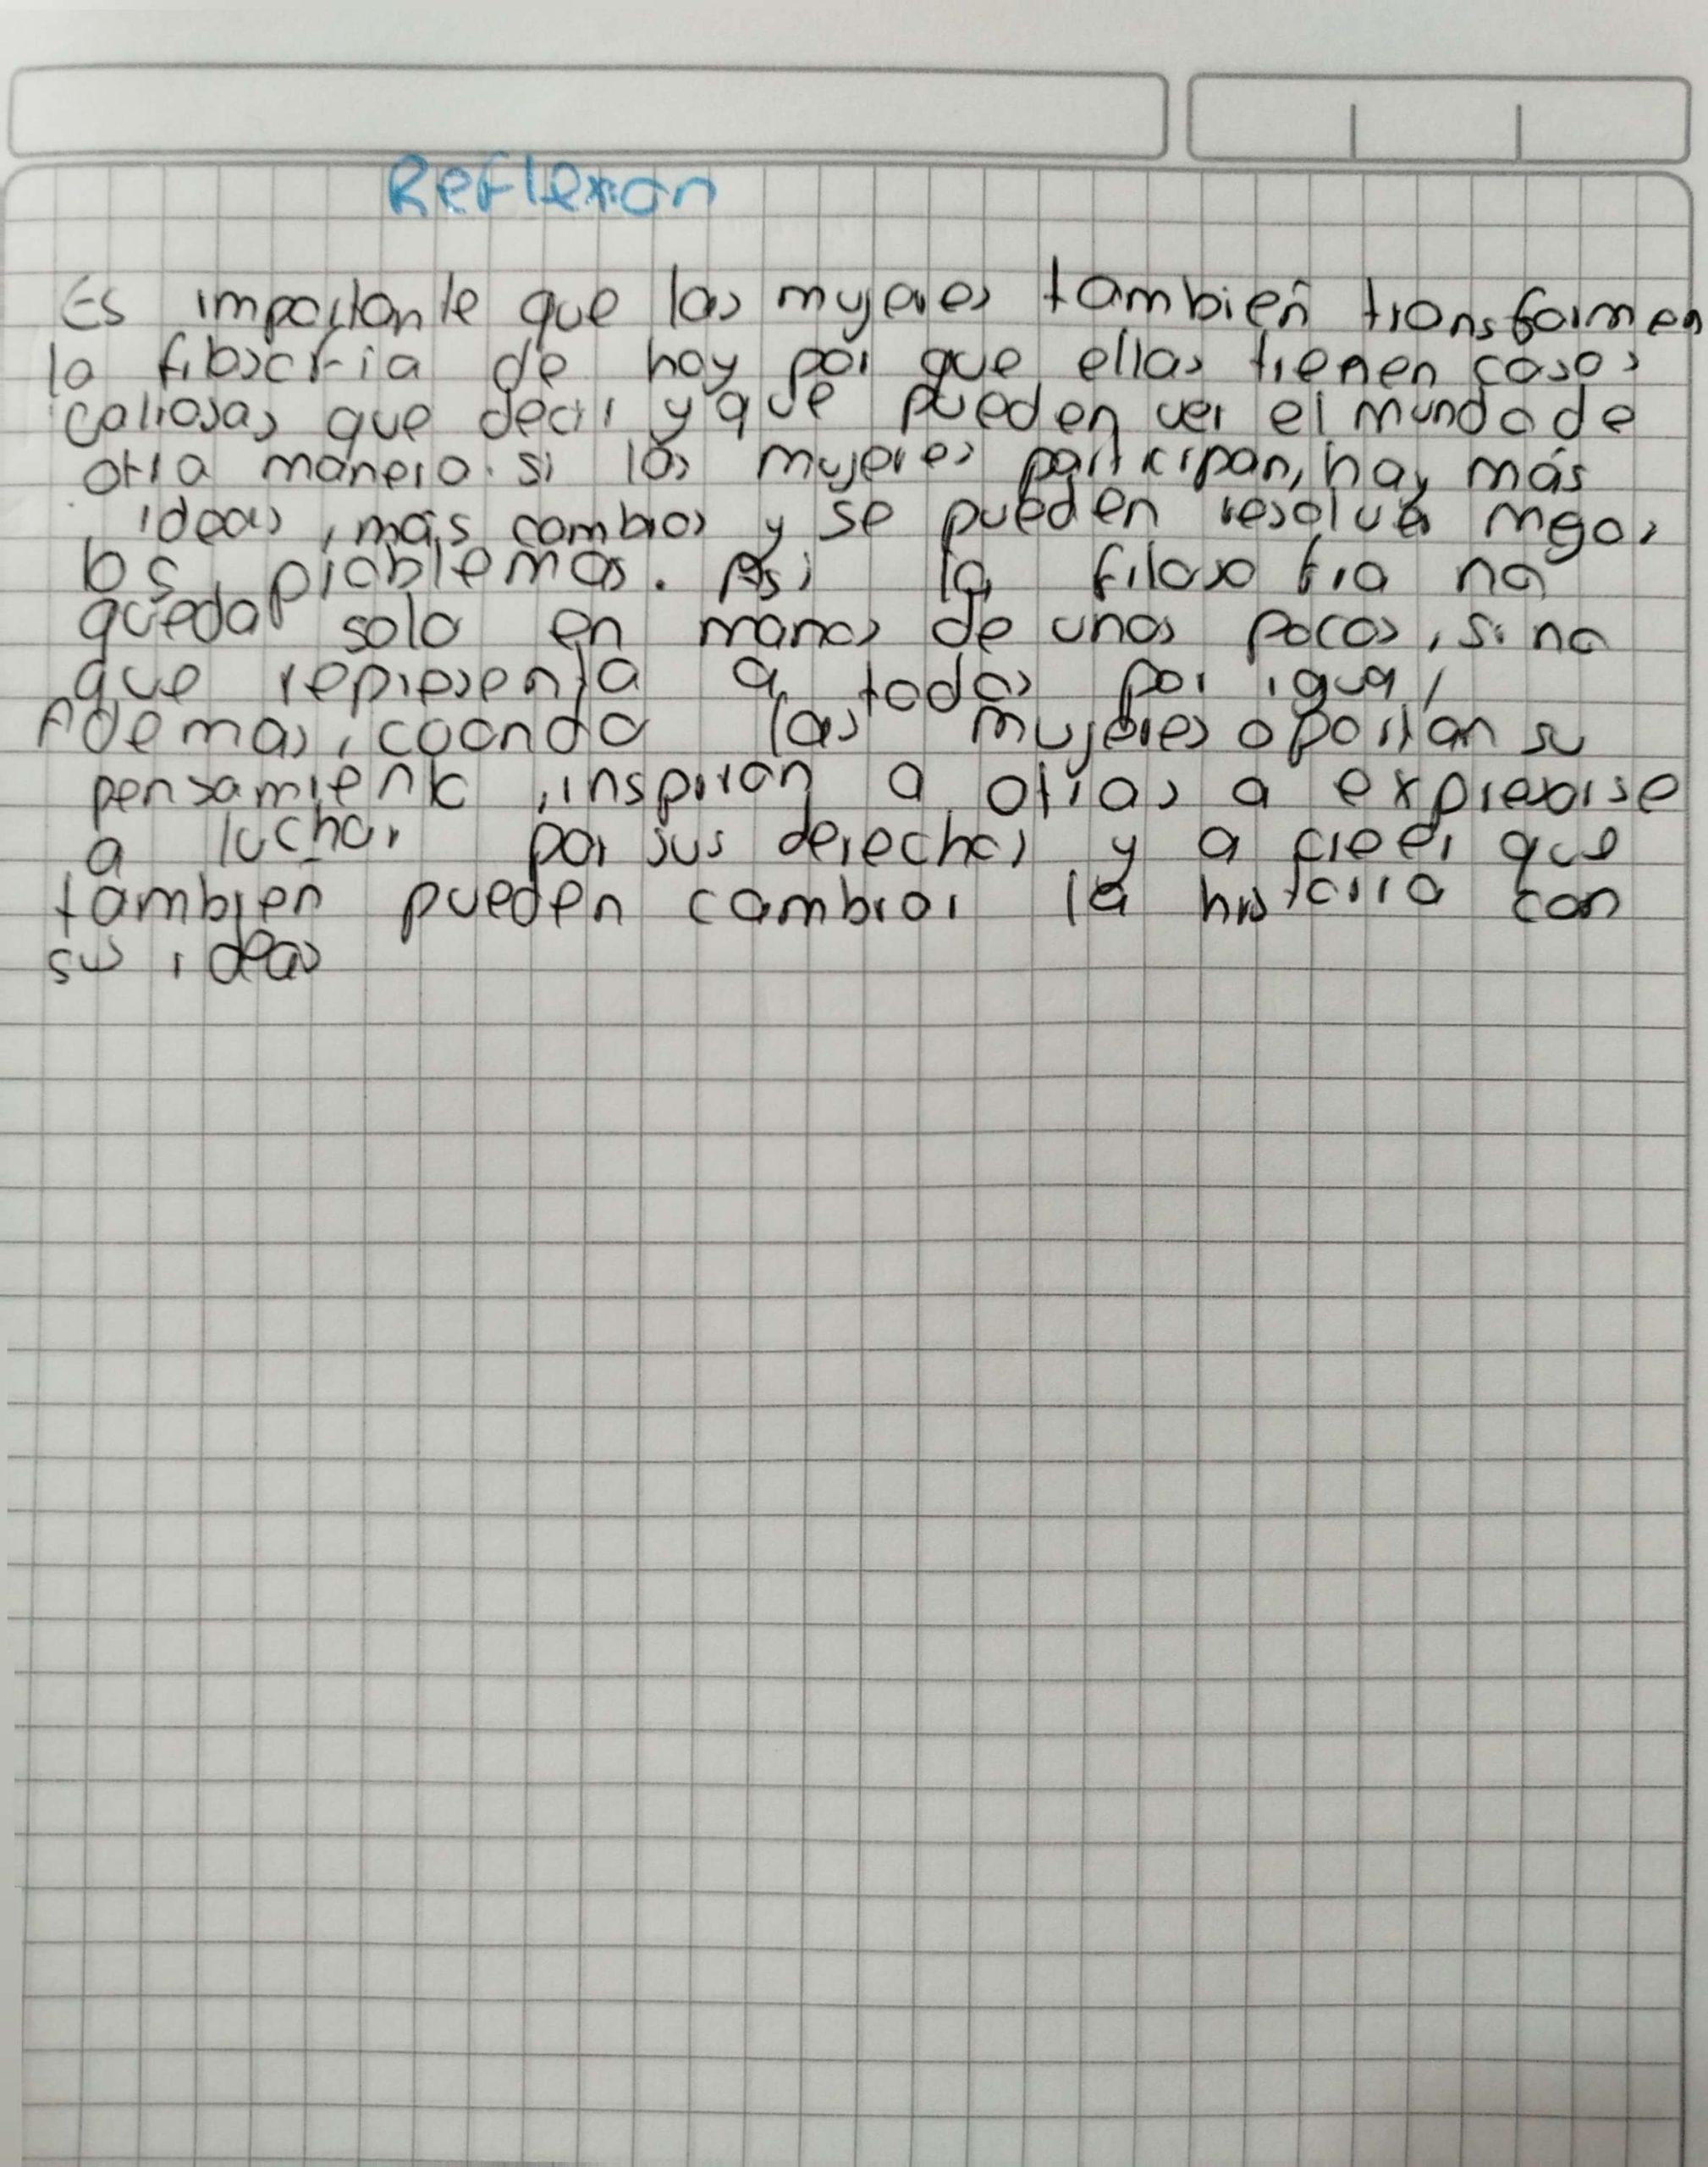 Reflexion
Es importante que las mujeres también transformen
la filosofia de hoy por que ellas tienen cosas
valiosas que decir y que pueden ver el mundo de
otra manera. si las mujeres participan, hay más
ideas, más cambios y se pueden resolver mejor
los problemas. Asi la filosofia no
queda solo en manos de unos pocos, sino
que representa a todos por igual,
Ademas, cuando las mujeres aportan su
pensamiento, inspiran a otras a expresarse
a luchar por sus derechos y a creer que
tambien pueden cambiar la historia con
sus ideas